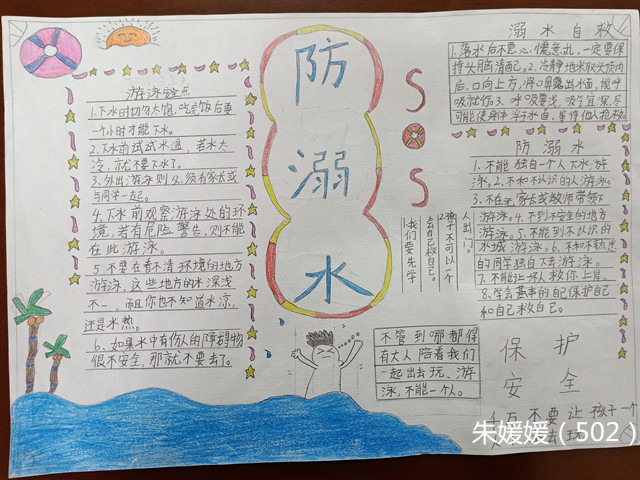 防溺水
SOS
游泳安全点
1.下水时切勿太饱,吃完饭后要
一个小时才能下水。
2.下水前试试水温,若水太
冷,就不要下水了。
3.外出游泳则必须有家长或
与同学一起。
4.下水前观察游泳处的环
境,若有危险警告,则不能
在此游泳。
5.不要在看不清环境的地方
游泳,这些地方的水深浅
不一,而且你也不知道水凉,
还是水热。
6、如果水中有伤人的障碍物
很不安全,那就不要去了。
溺水自救
1.落水后不要心慌意乱,一定要保
持头脑清醒。2.冷静地采取头顶向
后,口向上方,将口鼻露出水面,能呼
吸就行。3.呼吸要浅,吸气宜深,尽
可能使身体浮于水面,等待他人抢救。
防溺水
1.不能独自一个人下水游
泳。2.不和不认识的人游泳。
3.不在无家长或教师带领下
游泳。4.不到不安全的地方
游泳。5.不能到不认识的
水域游泳。6.不和不熟悉
的同学独自下去游泳。
7.不能让坏人救你上岸。
8.学会基本的自己保护自己
和自己救自己。
1我们要先学
会自己救自己。
2.孩子不可以一个
人出门。
不管到哪都得
有大人陪着我们
一起出去玩、游
泳,不能一个人。
保护
安全
千万不要让孩子一个
人去玩
朱媛媛(502)